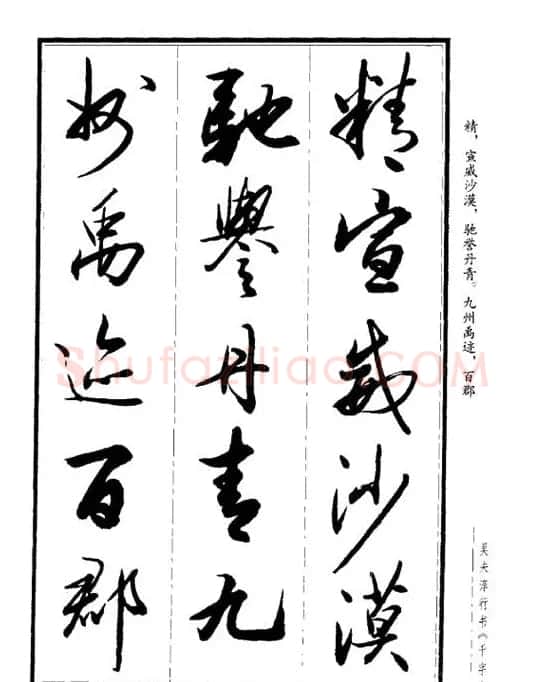 精宣威沙漠
驰誉丹青九
州禹迹百郡
精，宣威沙漠，驰誉丹青。九州禹迹，百郡
吴夫淳行书《千字
Shufaziliao.COM